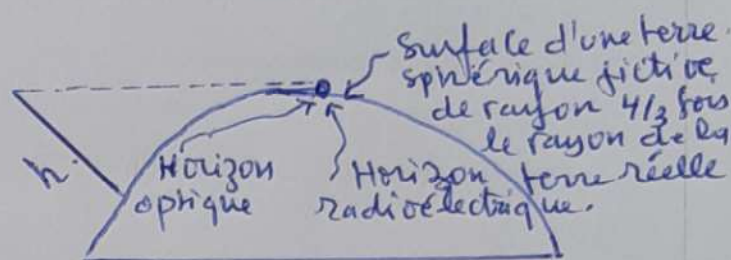 Surface d'une terre
sphérique fictive,
de rayon 4/3 fois
le rayon de la
terre réelle
h
Horizon
optique
Horizon
radioélectrique.